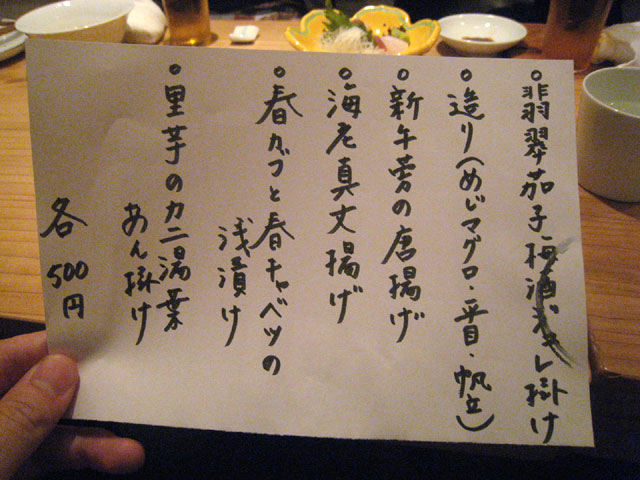 ○翡翠茄子梅酒ジュレ掛け
○造り(めじマグロ・平目・帆立)
○新牛蒡の唐揚げ
○海老真丈揚げ
○春カブと春キャベツの
浅漬け
○里芋のカニ湯葉
あん掛け
各500円